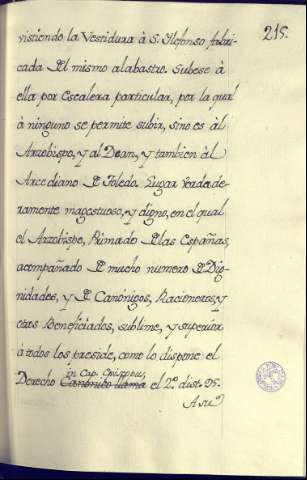 215.
vistiendo la Vestidura à S. Ilefonso fabri-
cada del mismo alabastro. Subese à
ella por Escalera particular, por la qual
à ninguno se permite subir, sino es àl
Arzobispo, y àl Dean, y tambien àl
Arcediano de Toledo. Lugar verdade-
ramente magestuoso, y digno, en el qual
el Arzobispo, Primado de las Españas,
acompañado de mucho numero de Dig-
nidades, y de Canónigos, Racioneros, y
otros Beneficiados, sublime, y superiòr
à todos los preside, como lo dispone el
in Cap.
Derecho Canónico llama el 2º. dist. 95.
A su